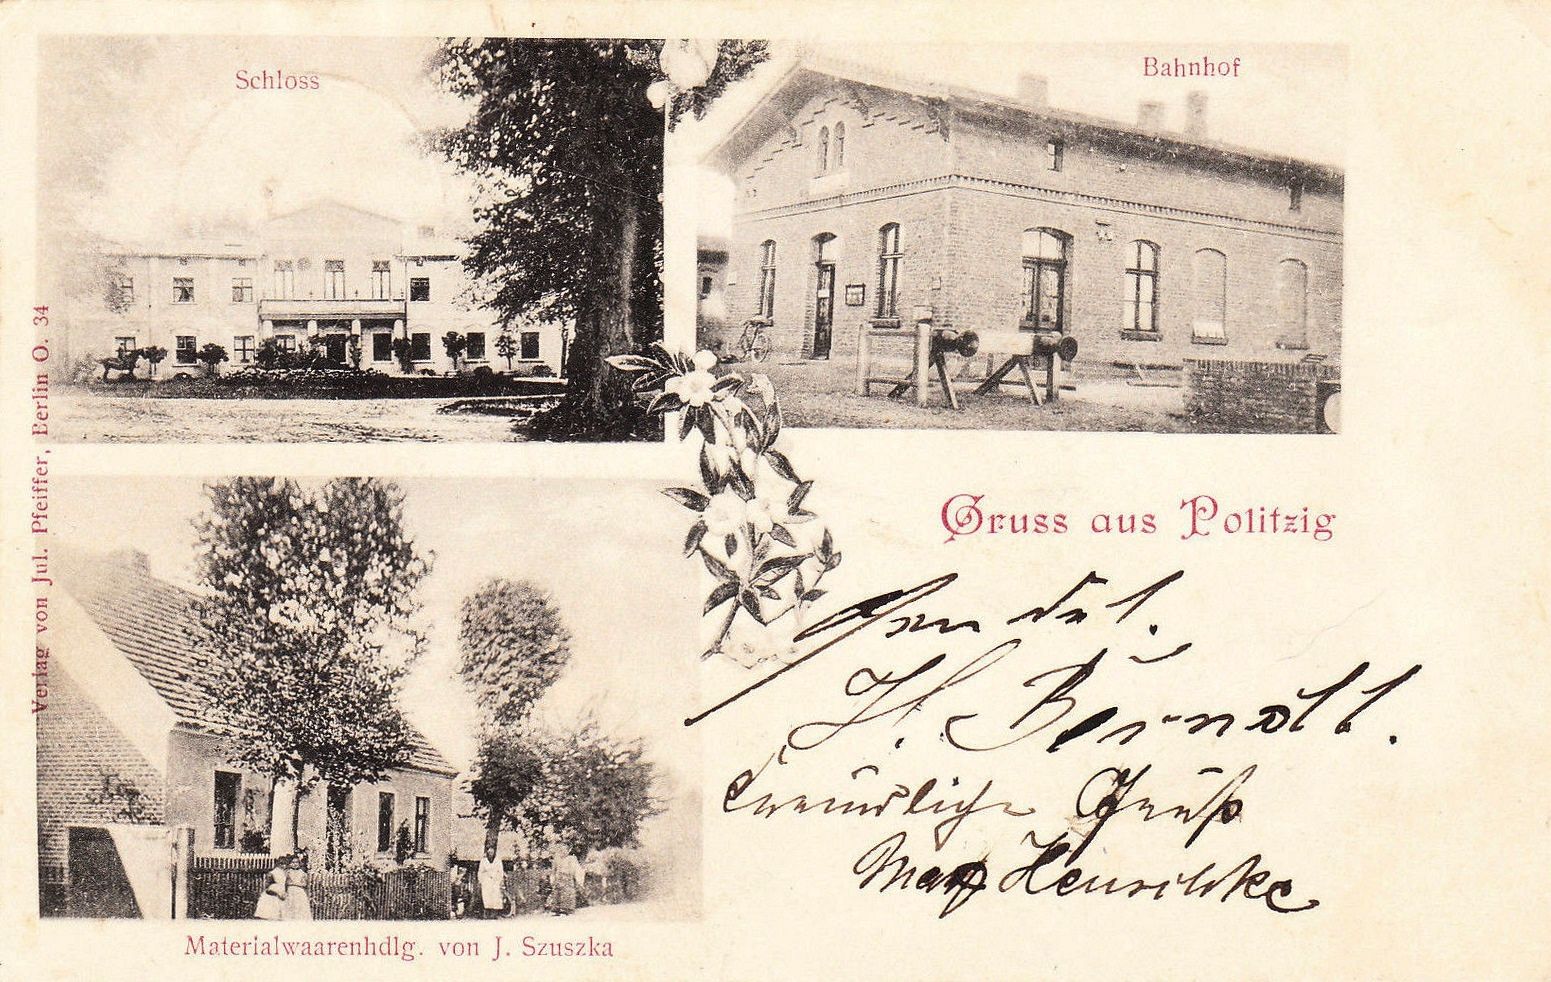 Schloss
Bahnhof
Verlag von Jul. Pfeiffer, Berlin O. 34
Gruss aus Politzig
H.
Freundliche Gruß
Max
Materialwaarenhdlg. von J. Szuszka